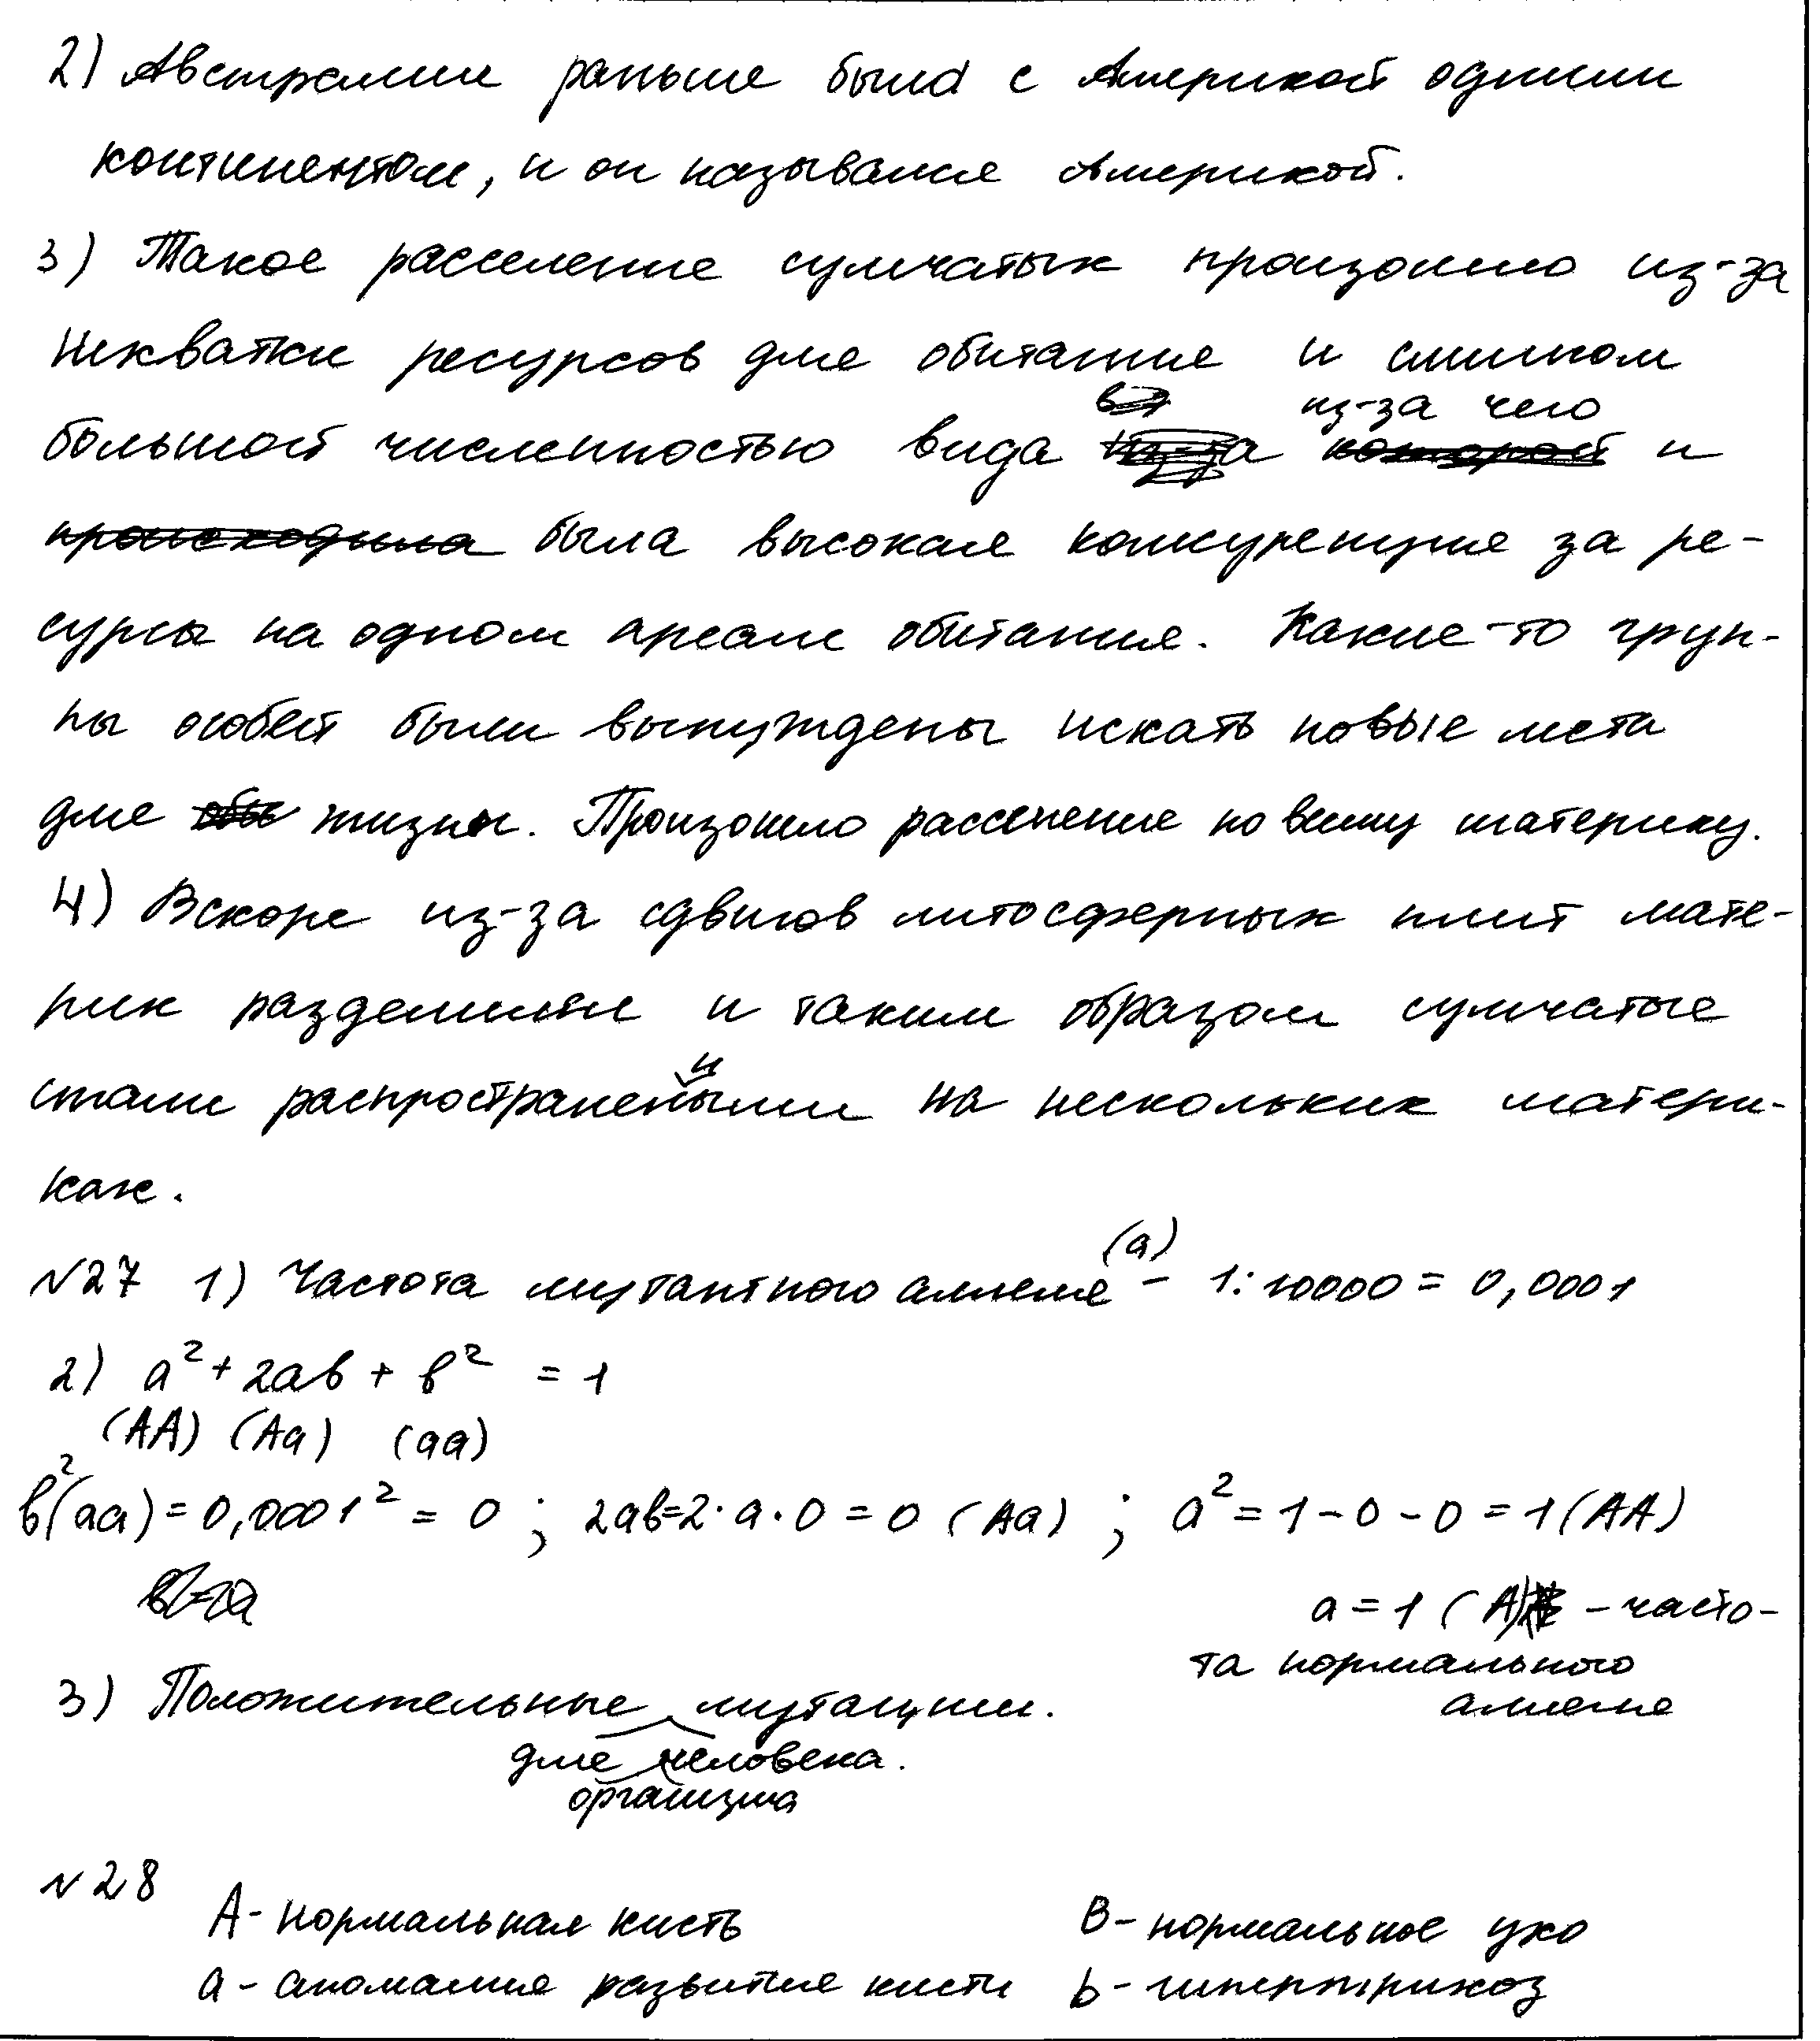 2) Австралия раньше была с Америкой одним
континентом, и он назывался Америкой.
3) Такое расселение сумчатых произошло из-за
нехватки ресурсов для обитания и слишком
из-за чего
большой численностью вида и
была высокая конкуренция за ре-
сурсы на одном ареале обитания. Какие-то груп-
пы особей были вынуждены искать новые места
для жизни. Произошло расселение по всему материку.
4) Вскоре из-за сдвигов литосферных плит мате-
рик разделился и таким образом сумчатые
стали распространенными на нескольких матери-
ках.
№27 1) Частота мутантного аллеля (а) - 1:10000 = 0,0001
2) a² + 2ab + b² = 1
(AA) (Aa) (aa)
b²(aa) = 0,0001² = 0 ; 2ab=2·a·0 = 0 (Aa) ; a² = 1-0-0 = 1 (AA)
a = 1 (A) - часто-
та нормального
аллеля
3) Положительные мутации.
для человека.
организма
№28
А- нормальная кисть В- нормальное ухо
а- аномалия развития кисти b- гипертрихоз